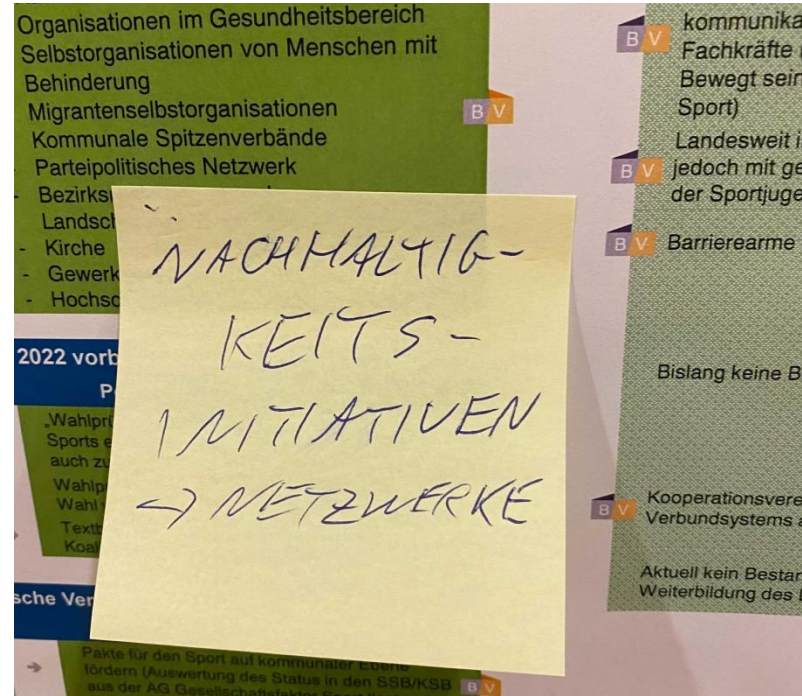 Organisationen im Gesundheitsbereich
Selbstorganisationen von Menschen mit
Behinderung
Migrantenselbstorganisationen
B V
Kommunale Spitzenverbände
Parteipolitisches Netzwerk
- Bezirks
Landsch
- Kirche
- Gewerk
- Hochsc
2022 vorb
P
„Wahlprü
Sports e
auch zu
Wahlp
Wahl
Textb
Koal
sche Ver
Pakte für den Sport auf kommunaler Ebene
fördern (Auswertung des Status in den SSB/KSB
aus der AG Gesellschaftsfaktor Sport
B V
NACHHALTIG-
KEITS-
INITIATIVEN
→ NETZWERKE
kommunika
B V
Fachkräfte
Bewegt sein
Sport)
Landesweit i
B V
jedoch mit ge
der Sportjuge
B V
Barrierearme
Bislang keine B
Kooperationsvere
B V
Verbundsystems a
Aktuell kein Bestan
Weiterbildung des